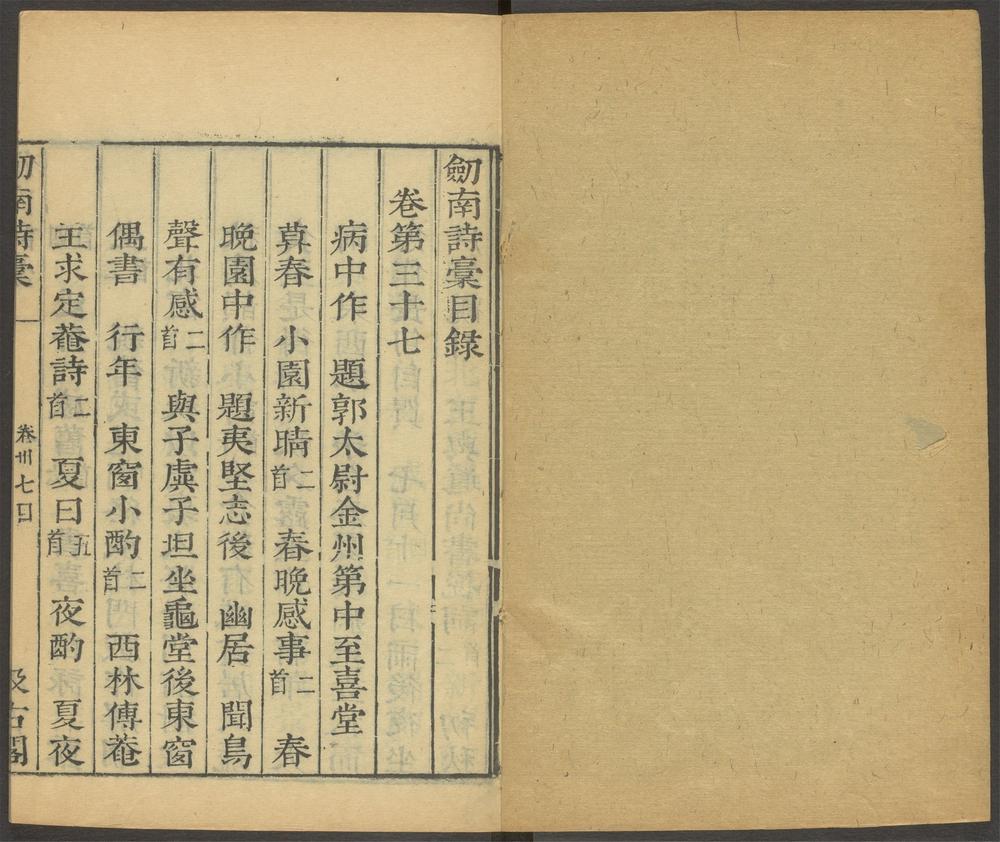 劒南詩稾目錄
卷第三十七
病中作 題郭太尉金州第中至喜堂
暮春 小園新晴二首 春晚感事二首 春
晚園中作 題夷堅志後 幽居 聞鳥
聲有感二首 與子虡子坦坐龜堂後東窗
偶書 行年 東窗小酌二首 西林傅菴
主求定菴詩二首 夏日五首 夜酌 夏夜
劒南詩稾 卷卅七目 一 汲古閣